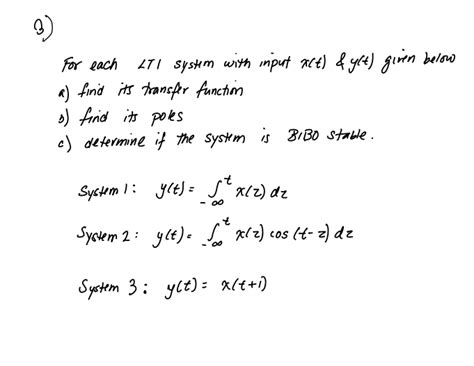 3)
For each LTI system with input x(t) & y(t) given below
a) find its transfer function
b) find its poles
c) determine if the system is BIBO stable.
System 1: y(t) = ∫_{-∞}^{t} x(z) dz
System 2: y(t) = ∫_{-∞}^{t} x(z) cos (t-z) dz
System 3: y(t) = x(t+1)